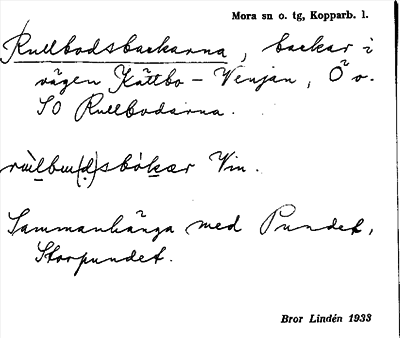 Mora sn o. tg, Kopparb. l.
Rullbodsbackarna, backar i
vägen Kättbo - Venjan, Ö o.
SO Rullbodarna.
Vin.
Sammanhänga med Pundet,
Storpundet.
Bror Lindén 1933